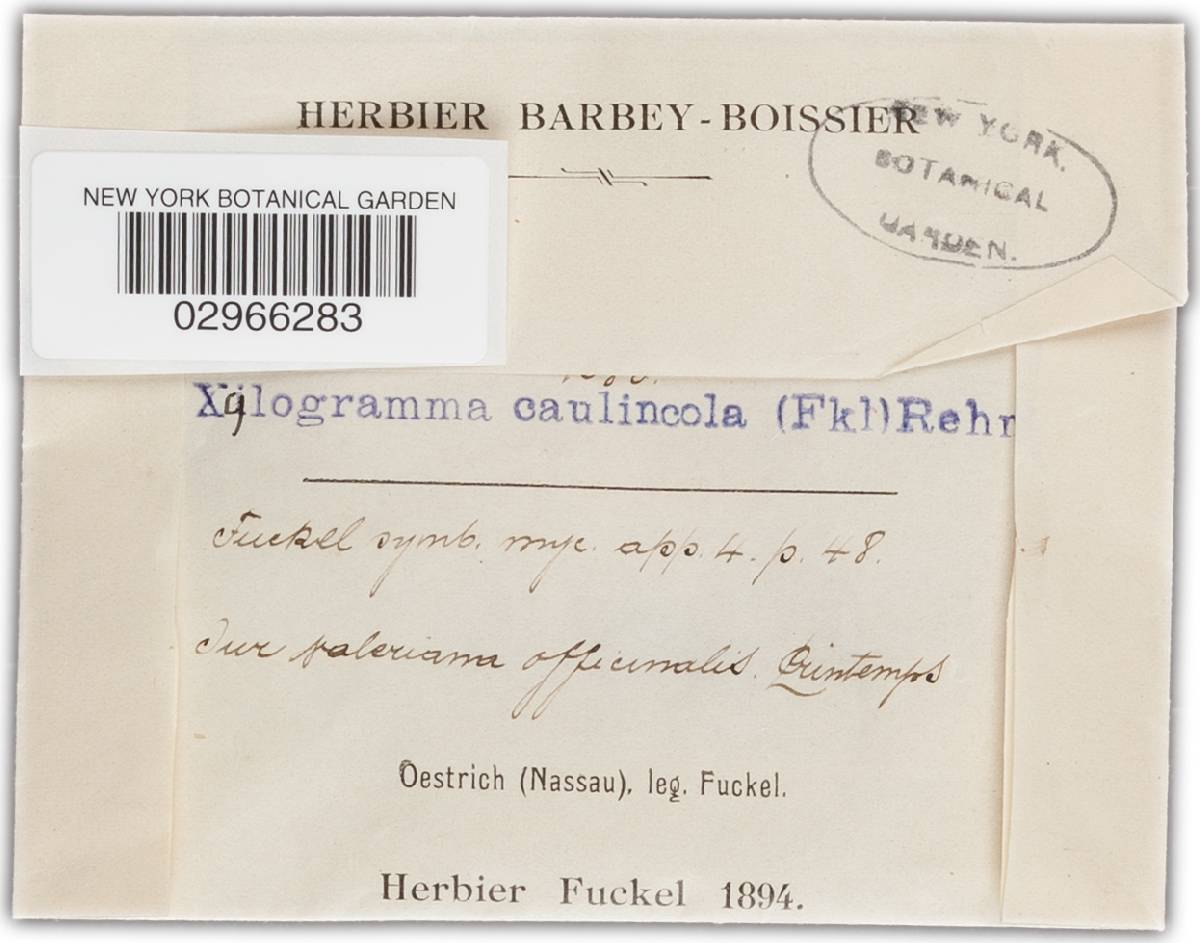 HERBIER BARBEY-BOISSIER
NEW YORK.
BOTANICAL
GARDEN.
NEW YORK BOTANICAL GARDEN
02966283
Xylogramma caulincola (Fkl)Rehr
Fuckel symb. myc. app. 4. p. 48.
Sur valeriana officinalis. Printemps
Oestrich (Nassau), leg. Fuckel.
Herbier Fuckel 1894.